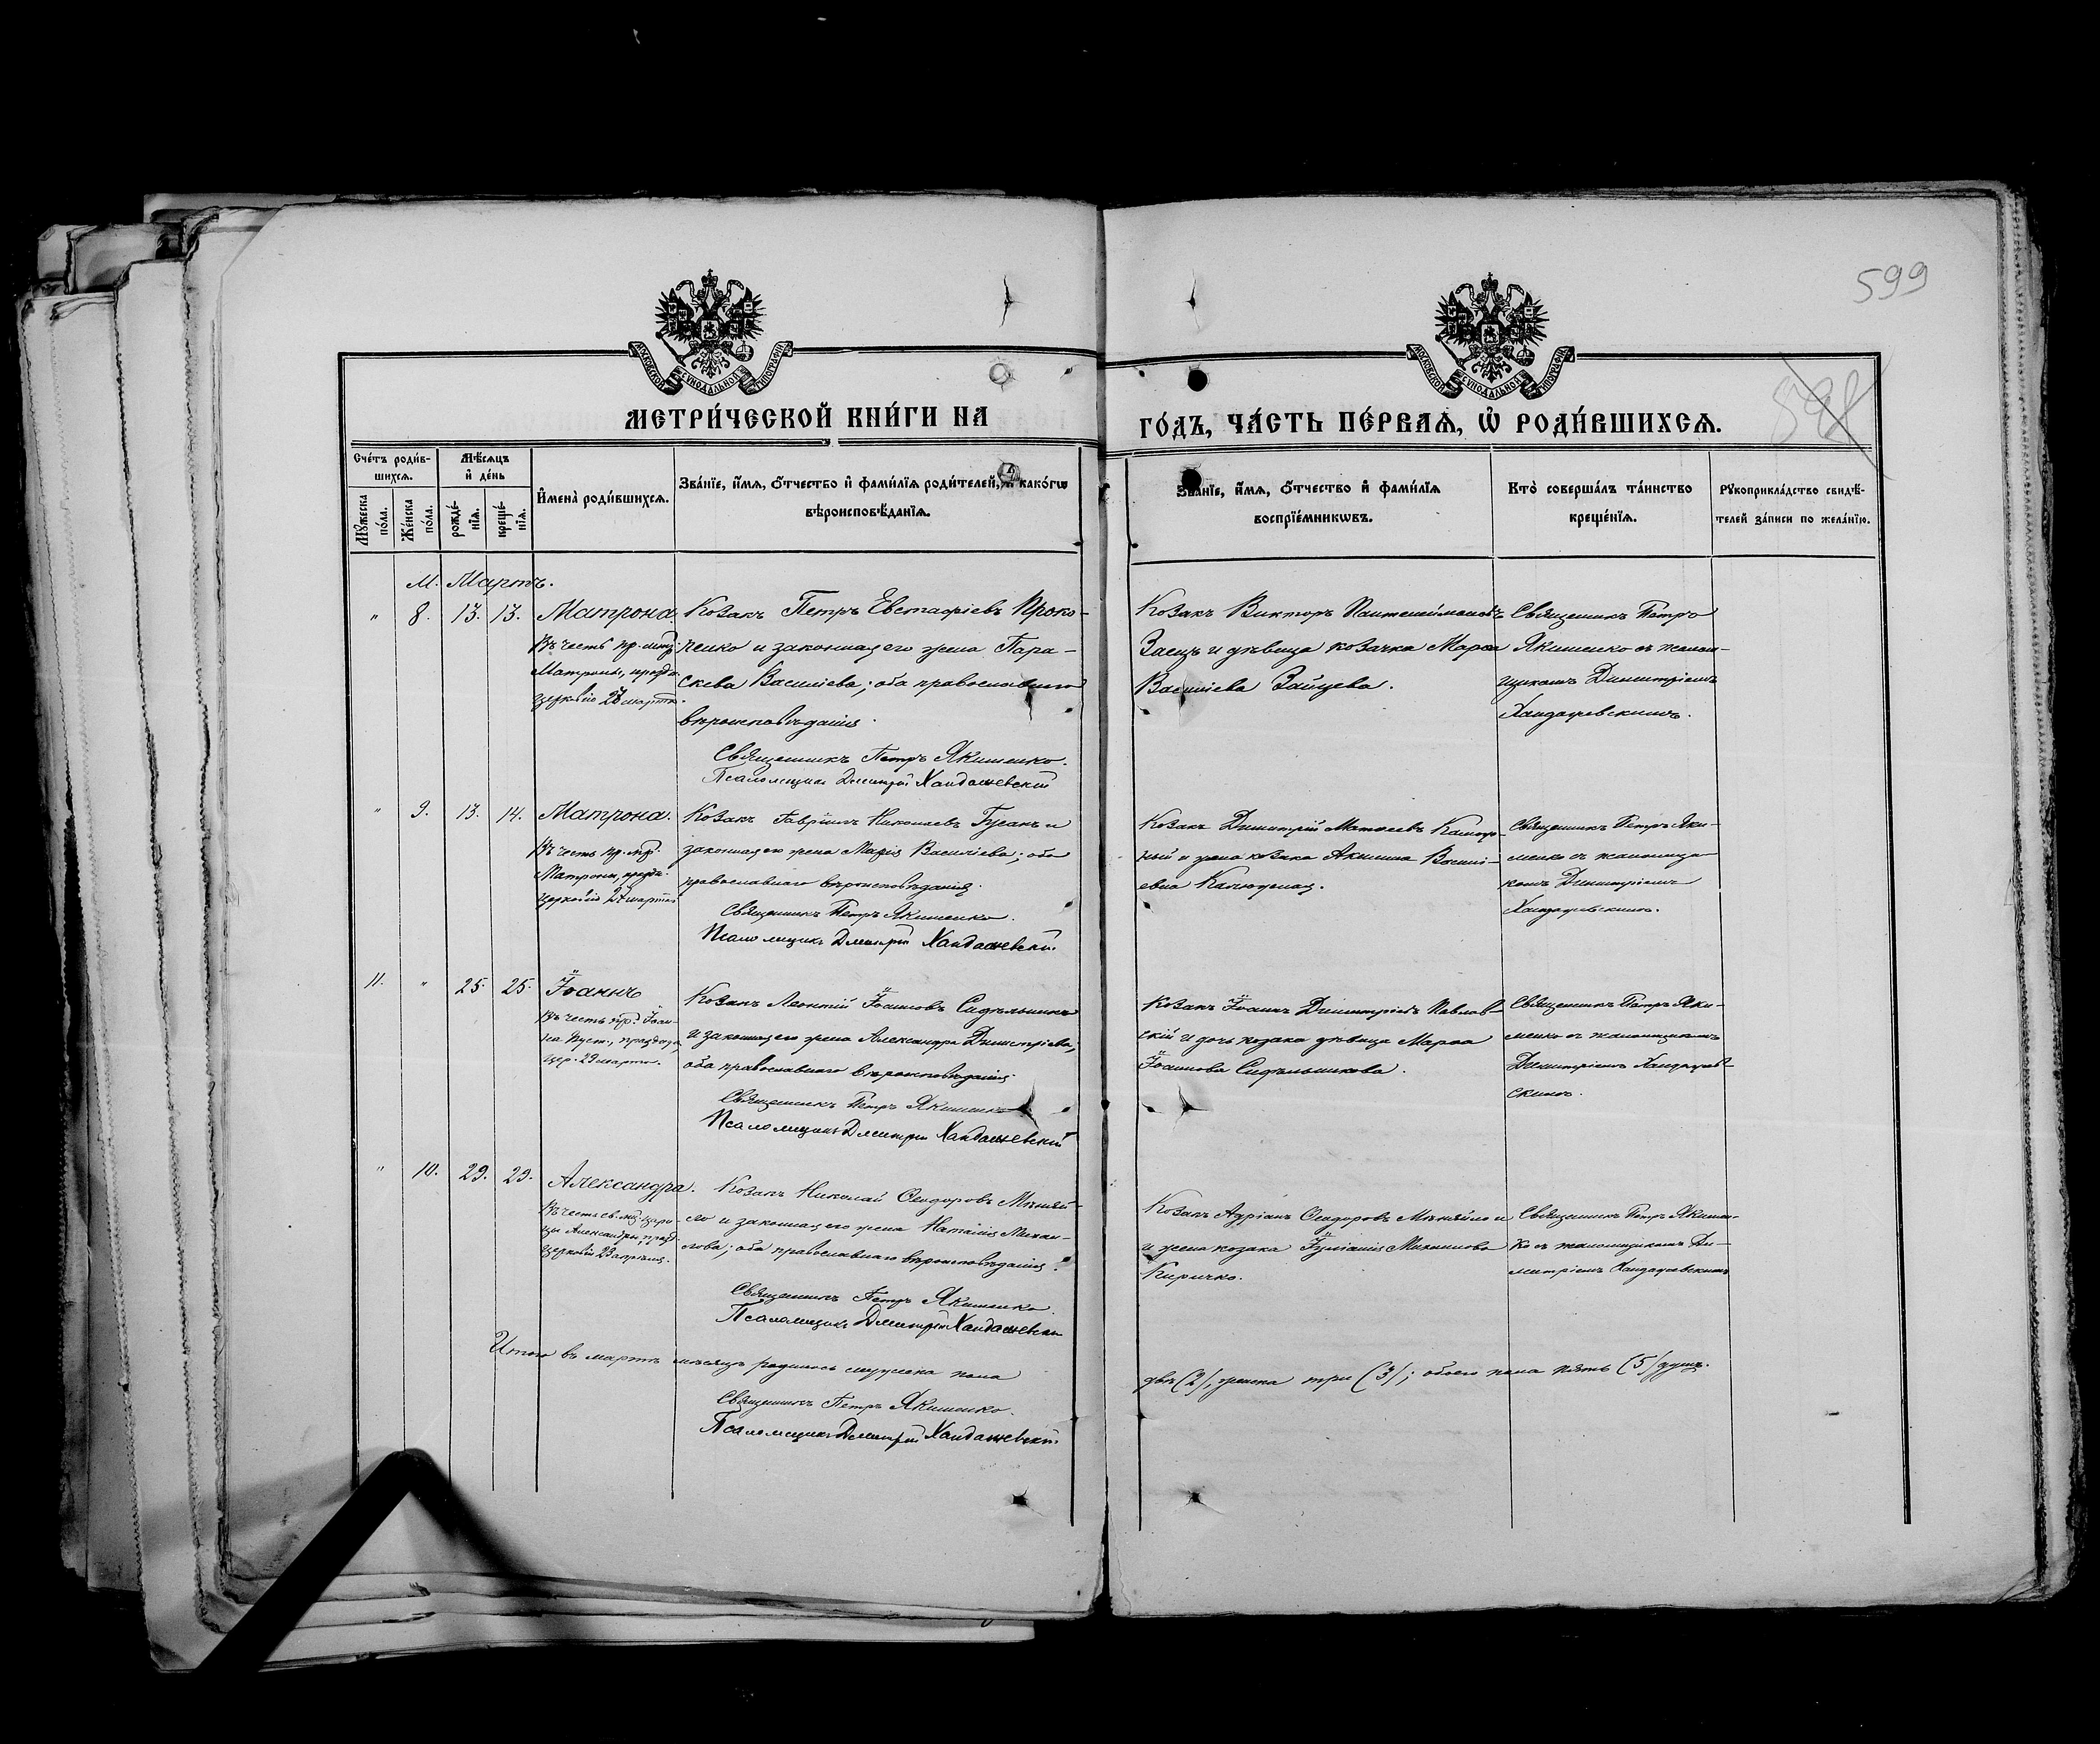 599
598
МОСКОВСКОЙ СУНОДАЛЬНОЙ ТИПОГРАФІИ
МОСКОВСКОЙ СУНОДАЛЬНОЙ ТИПОГРАФІИ
МЕТРИ́ЧЕСКОЙ КНИ́ГИ НА
ГО́ДЪ, ЧА́СТЬ ПЕ́РВАѦ, Ѡ РОДИ́ВШИХСѦ.
Сче́тъ роди́в-
шихсѧ.
Мꙋжеска по́ла.
Же́нска по́ла.
Мѣ́сѧцъ
и де́нь
рожде́-
нїѧ.
креще́-
нїѧ.
И҆мена̀ роди́вшихсѧ.
Зва́нїе, и҆́мѧ, ѻ҆́тчество и҆ фами́лїѧ роди́телей, и҆ како́гѡ
вѣроисповѣ́данїѧ.
Зва́нїе, и҆́мѧ, ѻ҆́тчество и҆ фами́лїѧ
воспрїе́мникѡвъ.
Кто̀ соверша́лъ та́инство
креще́нїѧ.
Рꙋкоприкла́дство свидѣ́-
телей за́писи по жела́нїю.
М. Мартъ.
" 8. 13. 13. Матрона
Въ честь пр. мтр.
Матроны, праздн.
церковію 27 марта.
Козакъ Петръ Евстафіевъ Проко-
пенко и законная его жена Пара-
скева Василіева; оба православнаго
вѣроисповѣданія.
Священникъ Петръ Якименко.
Псаломщикъ Дмитрій Хандажевскій
Козакъ Викторъ Пантелеймоновъ
Заецъ и дѣвица козачка Марѳа
Василіева Зайцева.
Священникъ Петръ
Якименко съ псалом-
щикомъ Димитріемъ
Хандажевскимъ.
" 9. 13. 14. Матрона.
Въ честь пр. мр.
Матроны, праздн.
церковію 27 марта
Козакъ Гавріилъ Николаевъ Гусакъ и
законная его жена Марія Василіева; оба
православнаго вѣроисповѣданія.
Священникъ Петръ Якименко.
Псаломщикъ Дмитрій Хандажевскій
Козакъ Димитрій Матѳеевъ
и жена козака Акилина Васили-
евна
Священникъ Петръ Яки-
менко съ псаломщи-
комъ Димитріемъ
Хандажевскимъ.
11. " 25. 25. Іоаннъ
Въ честь пр. Іоан-
на Пуст., празднуе.
цер. 29 марта.
Козакъ Леонтій Іоанновъ Сидѣльникъ
и законная его жена Александра Димитріева;
оба православнаго вѣроисповѣданія.
Священникъ Петръ Якименко
Псаломщикъ Дмитрій Хандажевскій
Козакъ Іоаннъ Димитріевъ Павлов-
скій и дочь козака дѣвица Марѳа
Іоаннова Сидѣльникова.
Священникъ Петръ Яки-
менко съ псаломщикомъ
Димитріемъ Хандажев-
скимъ.
" 10. 29. 29. Александра.
Въ честь св. мц. цари-
цы Александры, празд.
церковію 23 апрѣля.
Козакъ Николай Ѳеодоровъ Мѣняй-
ло и законная его жена Наталія Михаи-
лова; оба православнаго вѣроисповѣданія.
Священникъ Петръ Якименко.
Псаломщикъ Дмитрій Хандажевскій
Козакъ Адріанъ Ѳеодоровъ Мѣняйло и
и жена козака Іуліанія Михаилова
Киричко.
Священникъ Петръ Якимен-
ко съ псаломщикомъ Ди-
митріемъ Хандажевскимъ
Итого въ мартѣ мѣсяцѣ родилось мужеска пола
два (2), женска три (3); обоего пола пять (5) душъ.
Священникъ Петръ Якименко.
Псаломщикъ Дмитрій Хандажевскій